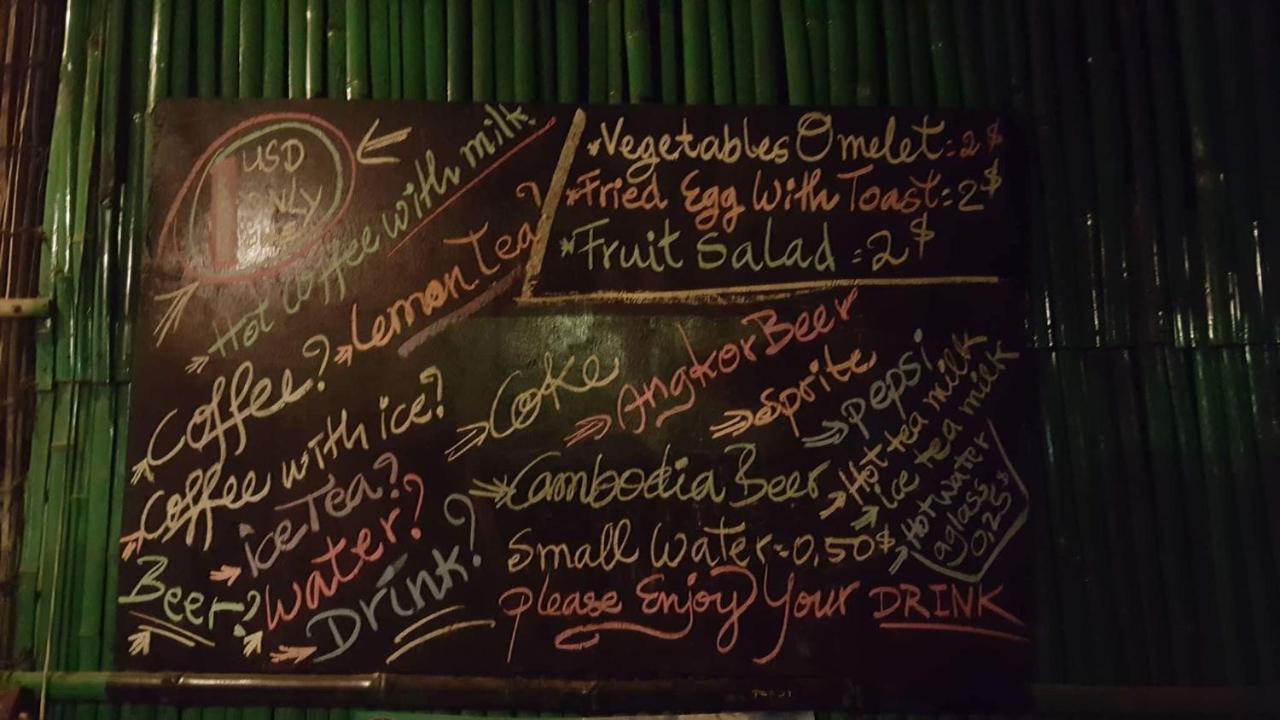 1 USD ONLY
Hot Coffee with milk?
Lemon Tea?
Coffee?
Coffee with ice?
ice Tea?
Beer?
Water?
Drink?
*Vegetables Omelet = 2$
*Fried Egg With Toast = 2$
*Fruit Salad = 2$
Coke
Angkor Beer
Sprite
Pepsi
Cambodia Beer
Hot tea milk
ice tea milk
Hot water
aglass
0,25$
Small Water = 0,50$
Please Enjoy Your DRINK